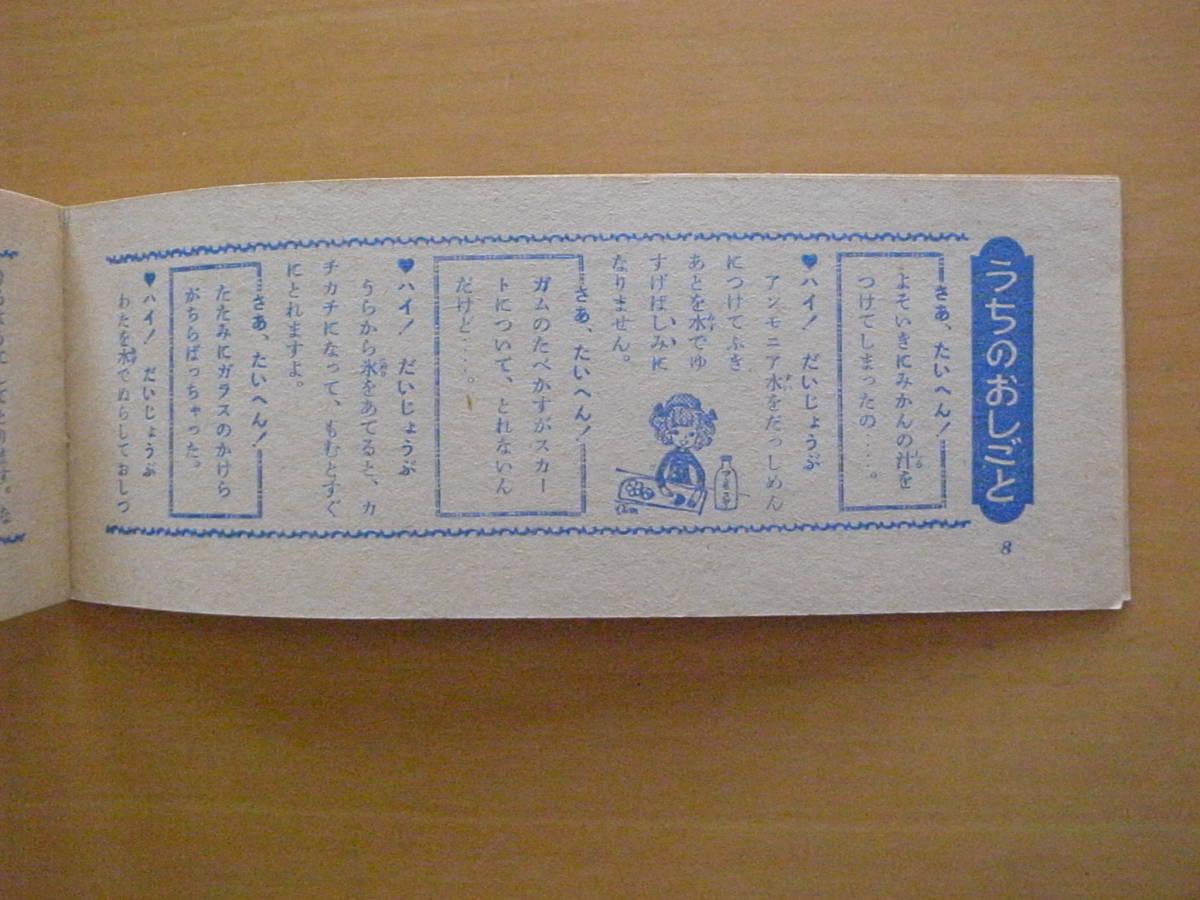 うちのおしごと
8
さあ、たいへん！
よそいきにみかんの汁を
つけてしまったの…。
♥ハイ！ だいじょうぶ
アンモニア水をだっしめん
につけてふき
あとを水でゆ
すげばしみに
なりません。
さあ、たいへん！
ガムのたべかすがスカー
トについて、とれないん
だけど…。
♥ハイ！ だいじょうぶ
うらから氷をあてると、カ
チカチになって、もむとすぐ
にとれますよ。
さあ、たいへん！
たたみにガラスのかけら
がちらばっちゃった。
♥ハイ！ だいじょうぶ
わたを水でぬらしておしつ